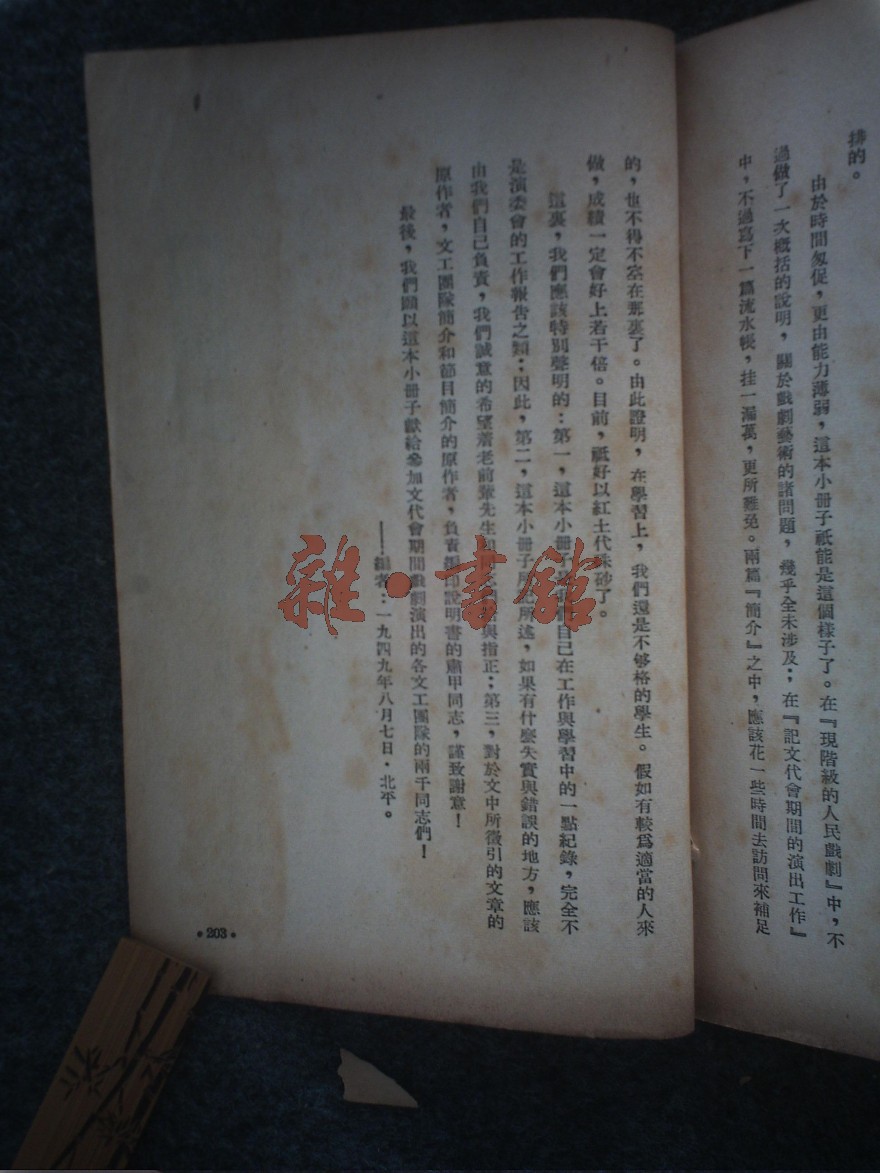 排的。
由於時間匆促，更由能力薄弱，這本小冊子祇能是這個樣子了。在『現階級的人民戲劇』中，不
過做了一次概括的說明，關於戲劇藝術的諸問題，幾乎全未涉及；在『記文代會期間的演出工作』
中，不過寫下一篇流水帳，挂一漏萬，更所難免。兩篇『簡介』之中，應該花一些時間去訪問來補足
的，也不得不塞在那裏了。由此證明，在學習上，我們還是不够格的學生。假如有較爲適當的人來
做，成績一定會好上若干倍。目前，祇好以紅土代硃砂了。
這裏，我們應該特別聲明的：第一，這本小冊子自己在工作與學習中的一點紀錄，完全不
是演委會的工作報告之類；因此，第二，這本小冊子所述，如果有什麽失實與錯誤的地方，應該
由我們自己負責，我們誠意的希望着老前輩先生與指正；第三，對於文中所徵引的文章的
原作者，文工團隊簡介和節目簡介的原作者，負責編印說明書的肅甲同志，謹致謝意！
最後，我們願以這本小冊子獻給參加文代會期間戲劇演出的各文工團隊的兩千同志們！
——編者：一九四九年八月七日·北平。
•203•
雜·書館